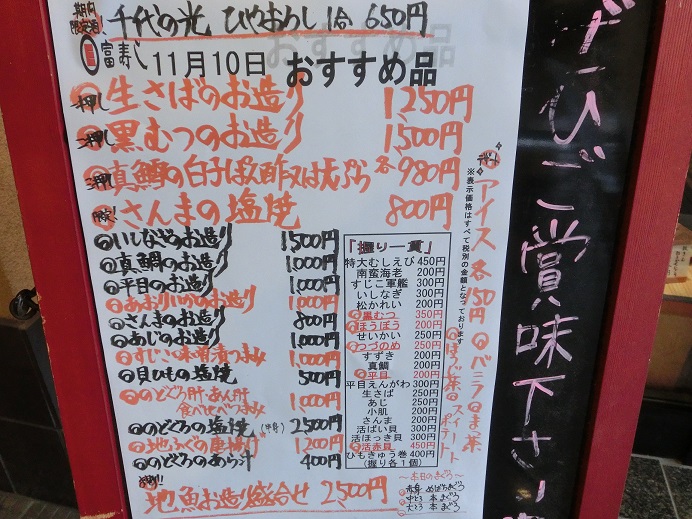 期間限定酒! 千代の光 ひやおろし 1合 650円
富寿し 11月10日 おすすめ品
一押し 生さばのお造り 1,250円
二押し 黒むつのお造り 1,500円
三押し 真鱈の白子ぽん酢又は天ぷら 各980円
さんまの塩焼 800円
いしなぎのお造り 1,500円
真鯛のお造り 1,000円
平目のお造り 1,000円
あおりいかのお造り 1,000円
さんまのお造り 800円
あじのお造り 1,000円
すじこ味噌漬つまみ 1,000円
貝ひもの塩焼 500円
のどぐろ肝・あん肝
食べ比べつまみ 1,000円
のどぐろの塩焼 (半身) 2,500円
地ふぐの唐揚げ 1,200円
のどぐろのあら汁 400円
地魚お造り盛合せ 2,500円
「握り一貫」
特大むしえび 450円
南蛮海老 200円
すじこ軍艦 300円
いしなぎ 300円
松かれい 200円
黒むつ 350円
ほうぼう 200円
せいかい 250円
つづのめ 250円
すずき 200円
真鯛 200円
平目 200円
平目えんがわ 300円
生さば 250円
あじ 250円
小肌 200円
さんま 200円
活ばい貝 300円
活ほっき貝 300円
活赤貝 450円
ひもきゅう巻 400円
(握り各1個)
~本日のまぐろ~
赤身 めばちまぐろ
中とろ 本まぐろ
大とろ 本まぐろ
※表示価格はすべて税別の金額となっております
デザート アイス 各150円
バニラ
ごま茶
ほうじ茶
スイートポテト
ぜひご賞味下さい